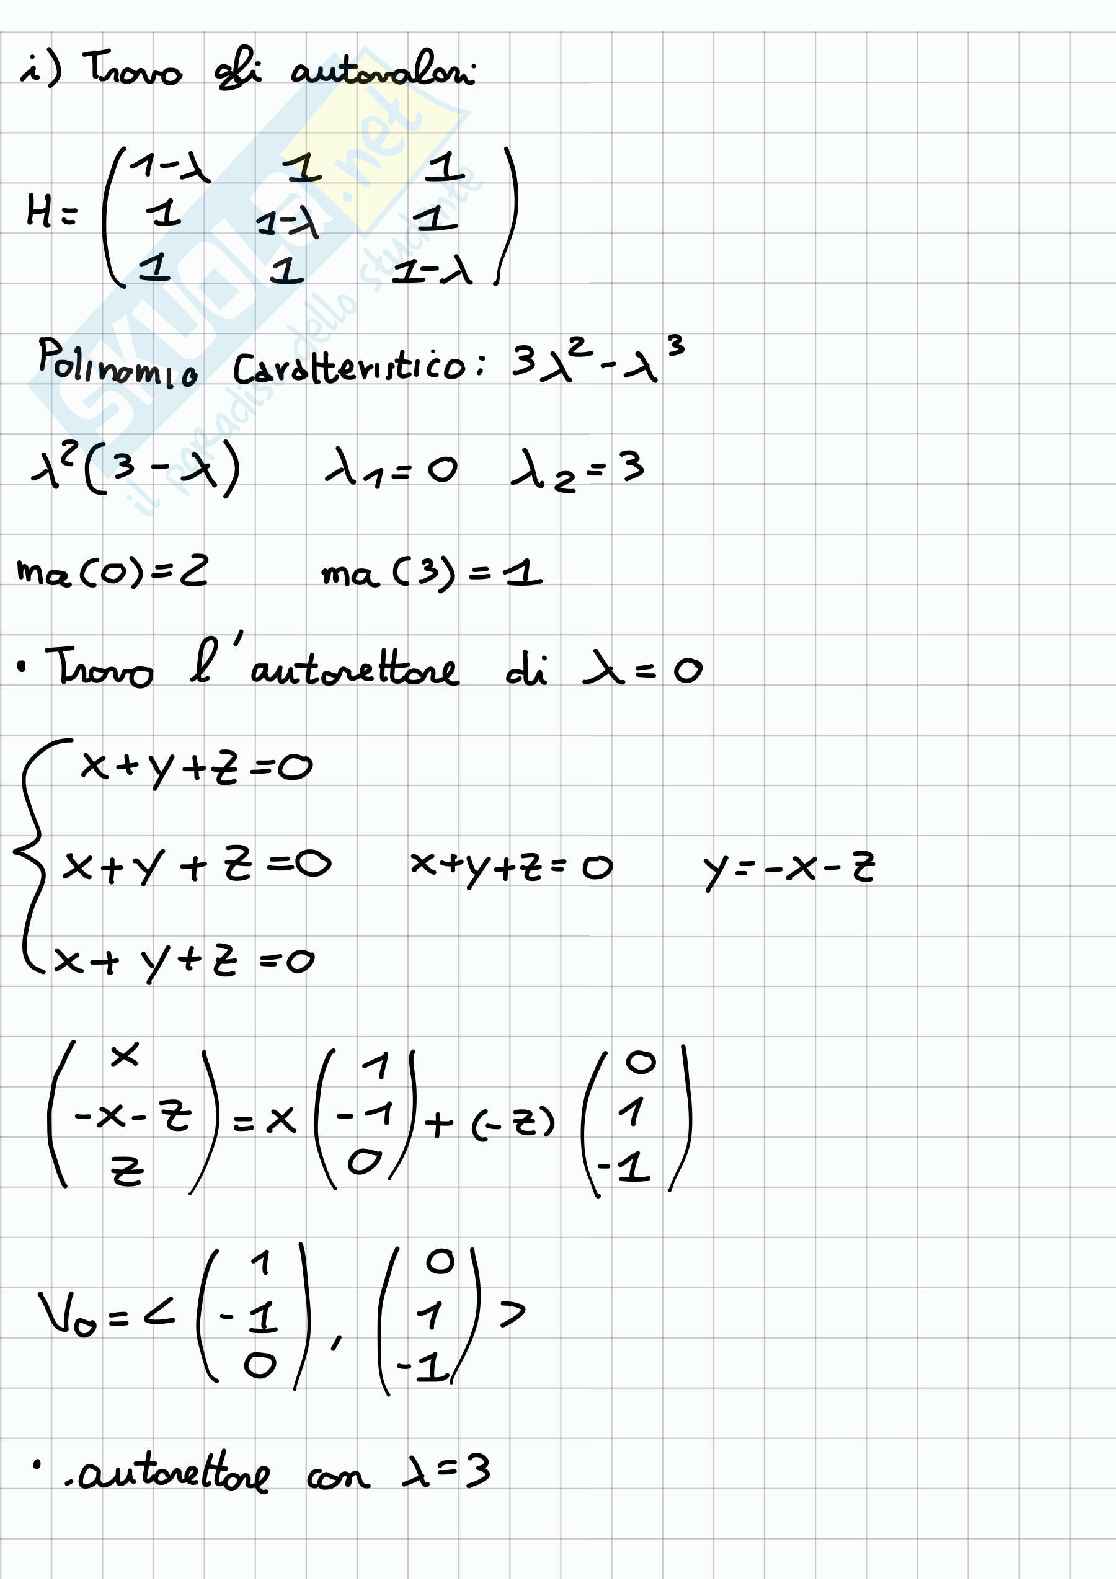 i) Trovo gli autovalori
H = (1-λ 1 1
1 1-λ 1
1 1 1-λ)
Polinomio Caratteristico: 3λ² - λ³
λ²(3 - λ) λ₁ = 0 λ₂ = 3
ma(0) = 2 ma(3) = 1
• Trovo l'autovettore di λ = 0
{ x + y + z = 0
x + y + z = 0 x + y + z = 0 y = -x - z
x + y + z = 0
(x
-x - z
z) = x (1
-1
0) + (-z) (0
1
-1)
V₀ = < (1
-1
0), (0
1
-1) >
• .autovettore con λ = 3
SKUOLA.net
il paradiso dello studente